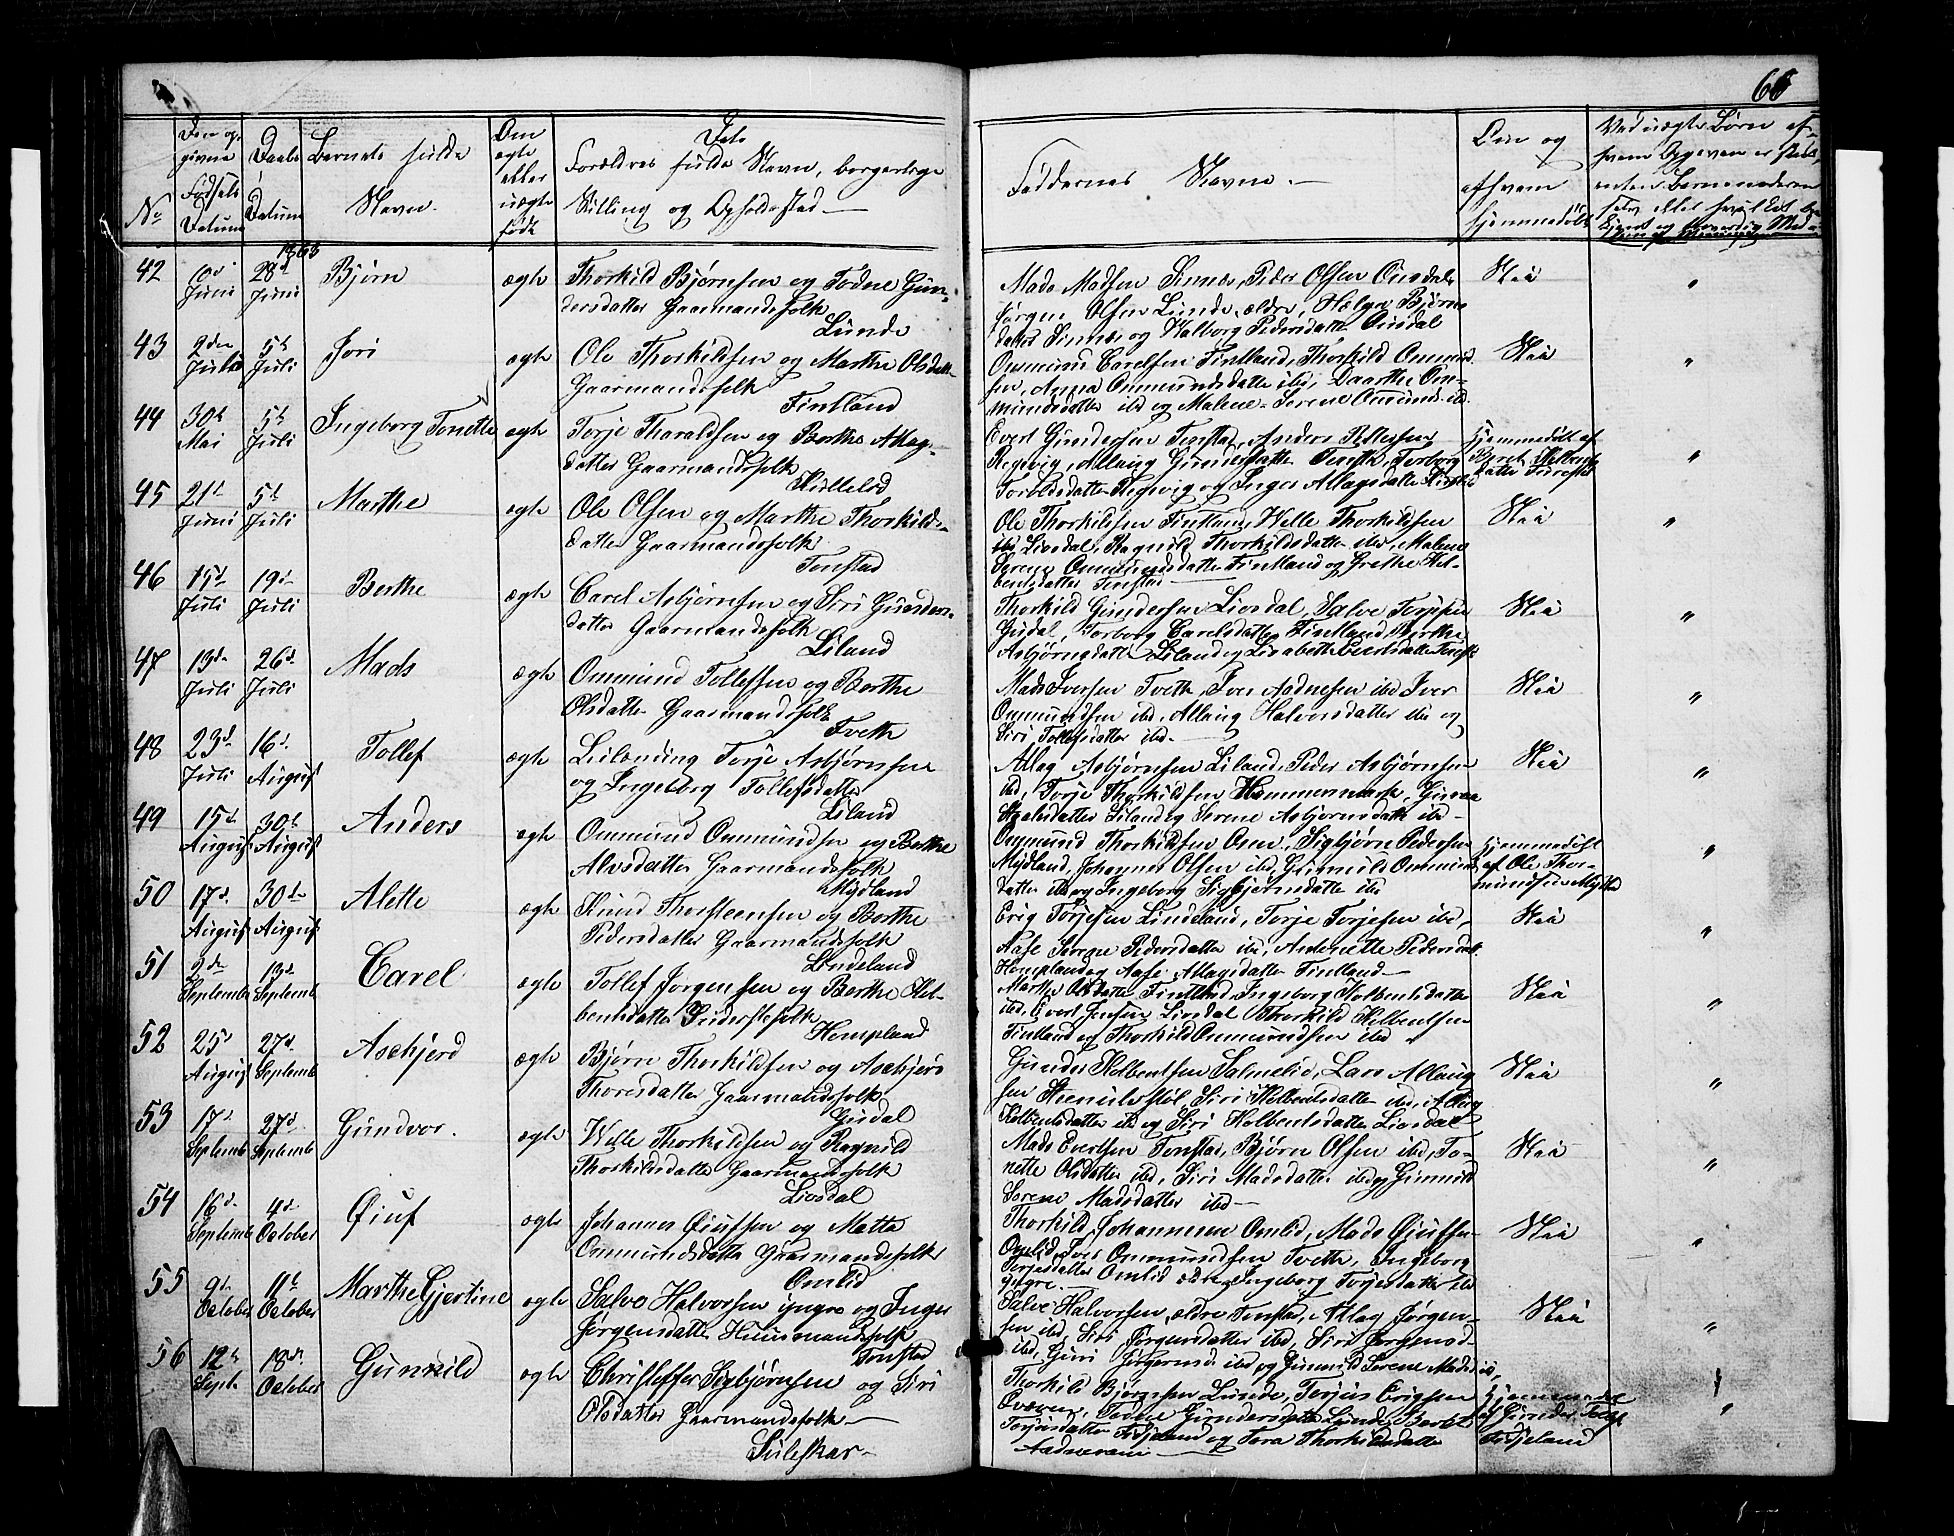 66
No
Den op-
givne
Fødsels
Datum
Daabs
Datum
Barnets fulde
Navn.
Om
ægte
eller
uægte
født
Dets
Forældres fulde Navn, borgerlige
Stilling og Opholdsstad
Faddernes Navne.
Om og
afhvem
hjemmedøbt
Ved uægte Børn af-
1863
42 Juni 28d Juni Bjørn ægte Thorkild Bjørnsen og Todne Gun-
dersdatter Gaarmandsfolk
Lunde
Mads Madsen Sinnes, Peder Olsen Ousdal
Jørgen Olsen Lunde ældre, Helga Bjørns
datter Sinnes og Valborg Pedersdatter Ousdal
Nei "
43 2den Juli 5t Juli Jori ægte Ole Thorkildsen og Marthe Olsdatter
Gaarmandsfolk
Fintland
Ommund Carelsen Fintland, Thorkild Ommund
sen, Anna Ommundsdatter ibd, Daarthe Om-
mundsdatter ibd og Malene Serene Omunds. ibd.
Nei "
44 30t Mai 5t Juli Ingeborg Tonette ægte Torje Tharaldsen og Berthe Atlag-
datter Gaarmandsfolk
Evert Gundersen Tonstad, Anders
Hjemmedøbt af
"
45 21t Juni 5t Juli Marthe ægte Ole Olsen og Marthe Thorkilds-
datter Gaarmandsfolk
Tonstad
Ole Thorkildsen Fintland, Velle Thorkildsen
Liosdal, Ragnild Thorkildsdatter ibd, Malene
Serene Ommundsdatter Fintland og Grethe Hol-
bentsdatter Tonstad
Nei "
46 15d Juli 19d Juli Berthe ægte Carel Asbjørnsen og Siri Gunders-
datter Gaarmandsfolk
Liland
Thorkild Gundersen Liosdal, Salve
Gusdal, Torborg Carelsdatter Fintland, Berthe
Asbjørnsdatter Liland og Lisabeth
Nei "
47 13de Juli 26d Juli Mads ægte Ommund Tollefsen og Berthe
Olsdatter Gaarmandsfolk
Tveth
Mads Iversen Tveth, Iver Aadnesen ibd Iver
Ommundsen ibd, Allaug Halvorsdatter ibd og
Siri Tollefsdatter ibd.
Nei "
48 23d Juli 16d August Tollef ægte Torje Asbjørnsen
og Ingeborg Tollefsdatter
Liland
Atlag Asbjørnsen Liland, Peder Asbjørnsen
ibd, Torje Thorkildsen Hammermark,
datter Liland og Serene Asbjørnsdatt ibd
Nei "
49 15d August 30t August Anders ægte Ommund Ommundsen og Berthe
Alvsdatter Gaarmandsfolk
Mydland
Ommund Thorkildsen Omn, Sigbjørn Pedersen
Mydland, Johannes Olsen ibd, Gunnild Ommund
datter ibd og Ingeborg Sigbjørnsdatter ibd
Hjemmedøbt
af Ole Thor-
"
50 17d August 30te August Alette ægte Knud Thorsteensen og Berthe
Pedersdatter Gaarmandsfolk
Lindeland
Erig Torjesen Lindeland, Torje Torjesen ibd,
Aase Serene Pedersdatter ibd, Andriette Pedersdatt
Hompland og Aase Atlagsdatter Fintland
Nei "
51 2de Septemb 13d Septemb Carel ægte Tollef Jørgensen og Berthe Hol-
bentsdatter Inderstefolk
Hompland
Marthe Olsdatter Fintland, Ingeborg Holbentsdatter
ibd, Evert Jensen Liosdal Thorkild Helbentsen
Fintland og Thorkild Ommundsen ibd
Nei "
52 25d August 27d Septemb Asebjørd ægte Bjørn Thorkildsen og Asebjørd
Thoresdatter Gaarmandsfolk
Gusdal
Gunder Holbentsen Salmelid, Lars Allaug
sen, Siri Holbentsdatter ibd, Atleig
Holbentsdatter ibd og Siri Holbentsdatter Liosdal
Nei "
53 17d Septemb 27d Septemb Gundvor. ægte Velle Thorkildsen og Ragnild
Thorkildsdatter Gaarmandsfolk
Liosdal
Mads Evertsen Tonstad, Bjørn Olsen ibd, To-
nette Olsdatter ibd, Siri Madsdatter ibd og Gunnild
Serene Madsdatter ibd
Nei "
54 16d Septemb 4d October Øiuf ægte Johannes Øiufsen og Matta
Ommundsdatter Gaarmandsfolk
Omlid
Thorkild Johannesen Omlid, Mads Øiufsen
Omlid, Iver Ommundsen Tveth, Ingeborg
Torjesdatter Omlid ældre, Ingeborg Torjesdatter ibd
yngre.
Nei "
55 9d October 11t October Marthe Gjertine ægte Salve Halvorsen yngre og Inger
Jørgensdatter Huusmandsfolk
Tonstad
Salve Halvorsen, ældre Tonstad, Atlag Jørgen-
sen ibd, Siri Jørgensdatter ibd, Siri Jørgensd-
ibd, Guri Jørgensd. ibd og Gunnild Serene Madsd ibd,
Nei "
56 12t Sept. 18de October Gunnild ægte Christoffer Sigbjørnsen og Siri
Olsdatter Gaarmandsfolk
Suleskar
Thorkild Bjørnsen Lunde, Torjus Erigsen
Qværen, Todne Gundersdatter Lunde,
Torjusdatter Fidjeland og Tora Thorkildsdatter
Aadneram
Hjemmedøbt
af Gunder
Fidjeland
"